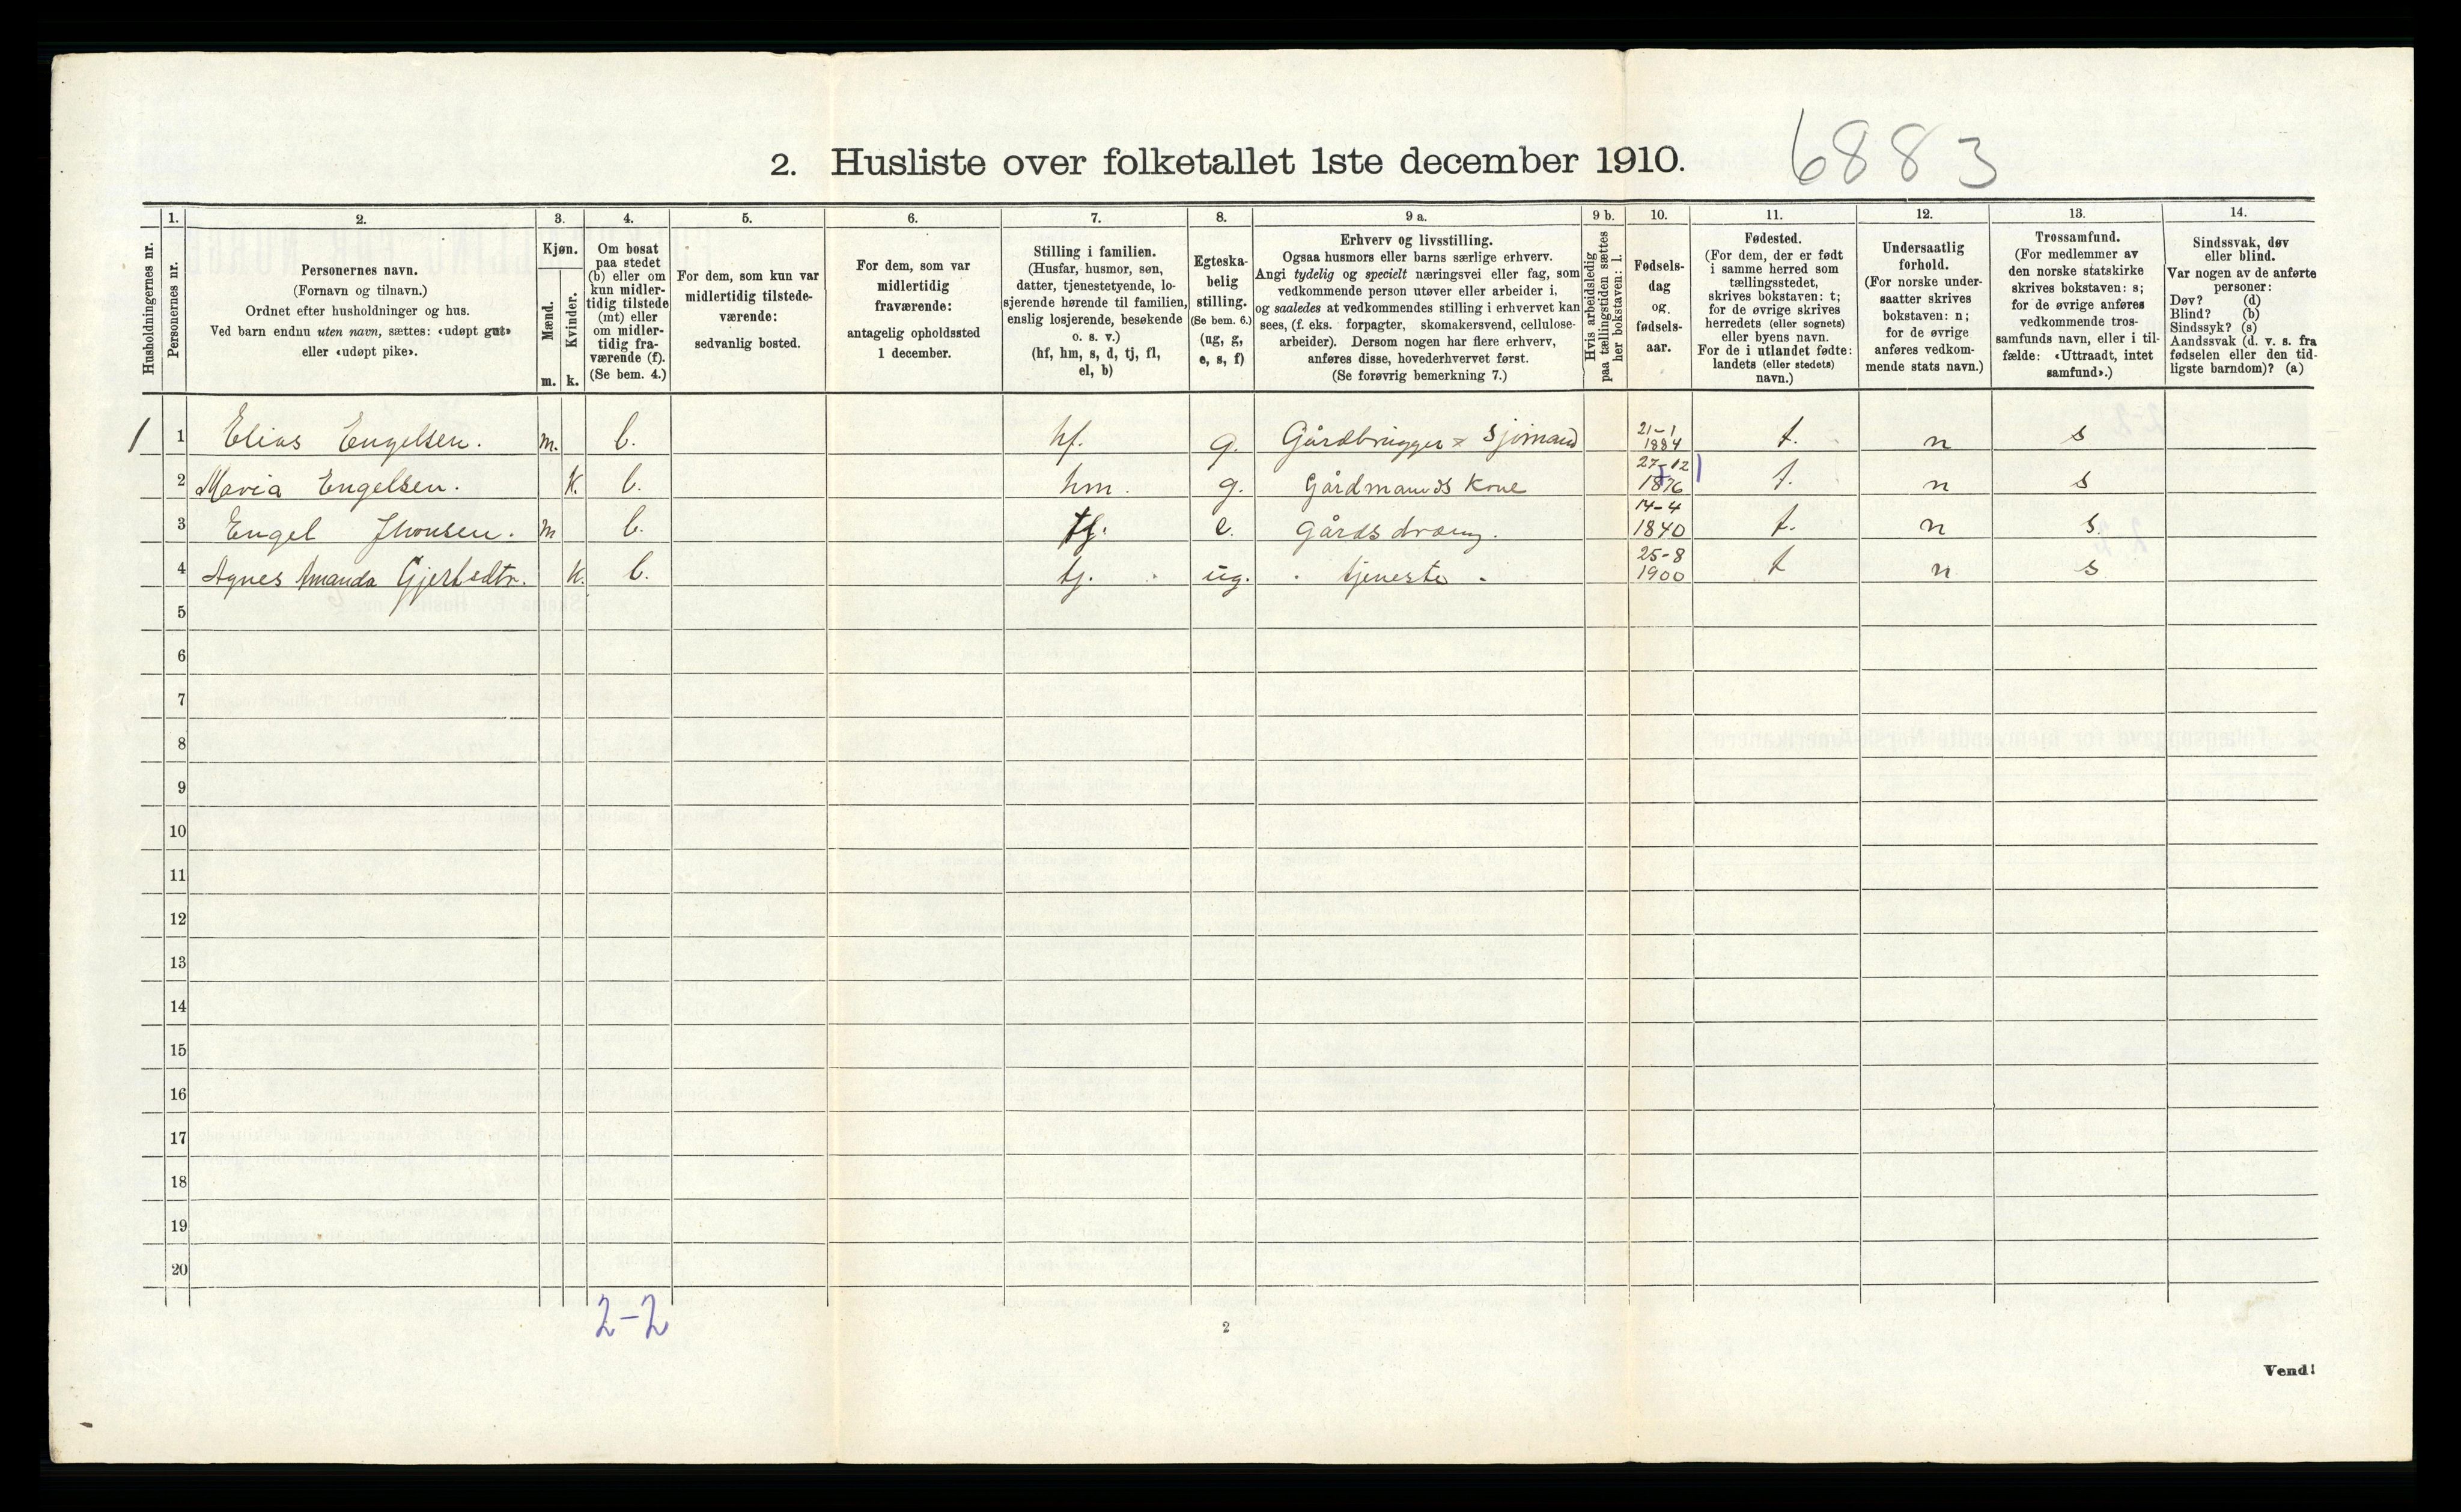 6883
2. Husliste over folketallet 1ste december 1910.
Husholdningernes nr.
1.
Personernes nr.
2.
Personernes navn.
(Fornavn og tilnavn.)
Ordnet efter husholdninger og hus.
Ved barn endnu uten navn, sættes: «udøpt gut»
eller «udøpt pike».
3.
Kjøn.
Mænd.
Kvinder.
m. k.
4.
Om bosat
paa stedet
(b) eller om
kun midler-
tidig tilstede
(mt) eller
om midler-
tidig fra-
værende (f).
(Se bem. 4.)
5.
For dem, som kun var
midlertidig tilstede-
værende:
sedvanlig bosted.
6.
For dem, som var
midlertidig
fraværende:
antagelig opholdssted
1 december.
7.
Stilling i familien.
(Husfar, husmor, søn,
datter, tjenestetyende, lo-
sjerende hørende til familien,
enslig losjerende, besøkende
o. s. v.)
(hf, hm, s, d, tj, fl,
el, b)
8.
Egteska-
belig
stilling.
(Se bem. 6.)
(ug, g,
e, s, f)
9 a.
Erhverv og livsstilling.
Ogsaa husmors eller barns særlige erhverv.
Angi tydelig og specielt næringsvei eller fag, som
vedkommende person utøver eller arbeider i,
og saaledes at vedkommendes stilling i erhvervet kan
sees, (f. eks. forpagter, skomakersvend, cellulose-
arbeider). Dersom nogen har flere erhverv,
anføres disse, hovederhvervet først.
(Se forøvrig bemerkning 7.)
9 b.
Hvis arbeidsledig
paa tællingstiden sættes
her bokstaven: l.
10.
Fødsels-
dag
og
fødsels-
aar.
11.
Fødested.
(For dem, der er født
i samme herred som
tællingsstedet,
skrives bokstaven: t;
for de øvrige skrives
herredets (eller sognets)
eller byens navn.
For de i utlandet fødte:
landets (eller stedets)
navn.)
12.
Undersaatlig
forhold.
(For norske under-
saatter skrives
bokstaven: n;
for de øvrige
anføres vedkom-
mende stats navn.)
13.
Trossamfund.
(For medlemmer av
den norske statskirke
skrives bokstaven: s;
for de øvrige anføres
vedkommende tros-
samfunds navn, eller i til-
fælde: «Uttraadt, intet
samfund».)
14.
Sindssvak, døv
eller blind.
Var nogen av de anførte
personer:
Døv? (d)
Blind? (b)
Sindssyk? (s)
Aandssvak (d. v. s. fra
fødselen eller den tid-
ligste barndom)? (a)
1 1 Elias Engelsen. m. b. hf. g. Gårdbrugger x Sjømand 21-1 1884 t. n s
2 Maria Engelsen. k. b. hm. g. Gårdmands Kone 27-12 1876 t. n s
3 Engel Jhonsen. m b. tj. e. Gårdsdreng. 14-4 1840 t. n s.
4 Agnes Amanda Gjertsdtr. k. b. tj. ug. tjeneste 25-8 1900 t n s
5
6
7
8
9
10
11
12
13
14
15
16
17
18
19
20
2-2
2
Vend!